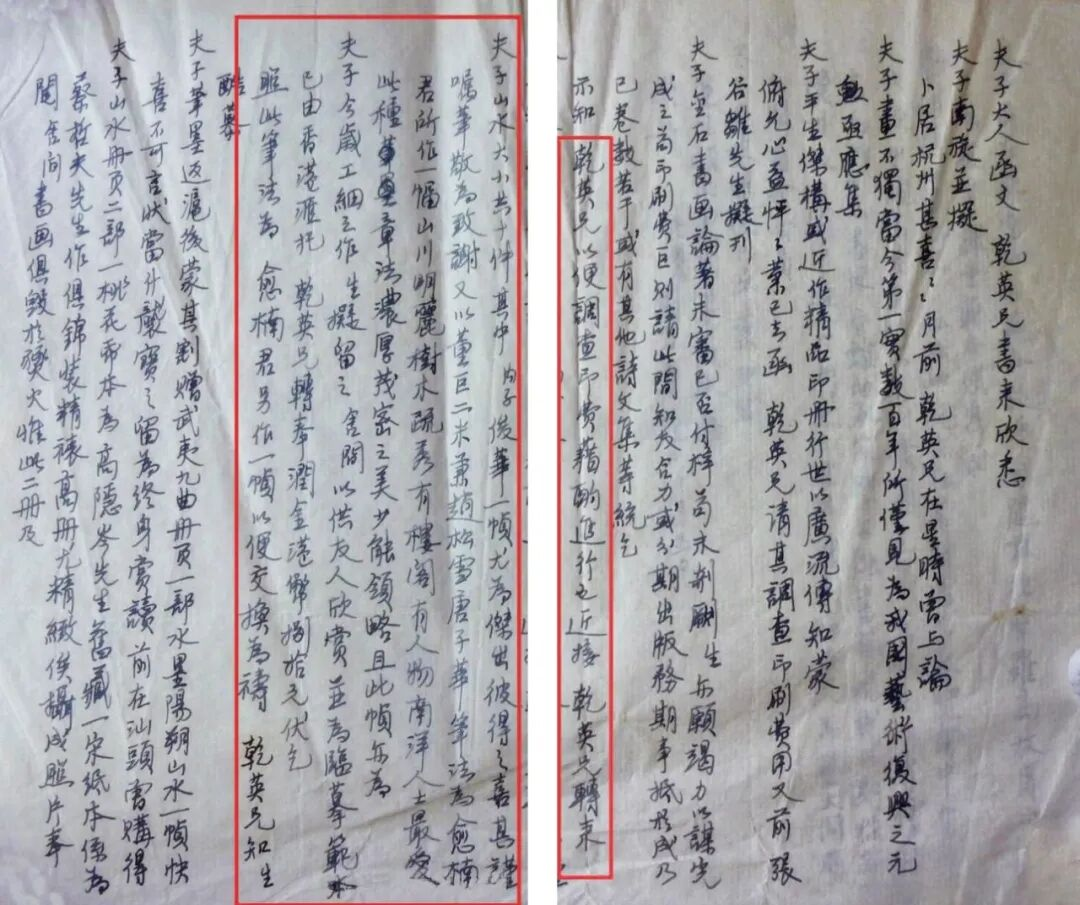 夫子大人函丈 乾英兄書来欣悉
夫子南旋並擬
卜居杭州甚喜之月前 乾英兄在星時曾上論
夫子畫不獨當今第一實數百年所僅見為我國藝術復興之元
勳亟應集
夫子平生傑構或近作精品印冊行世以廣流傳知蒙
俯允心益怦之業已去函 乾英兄请其調查印刷費用又前張
谷雛先生擬刊
夫子金石書画論著未審已否付梓苟未剞劂生亦願竭力以謀完
成之苟印刷費巨则請此間知友合力或分期出版務期事抵於成乃
已卷数若干或有其他詩文集等統乞
示知 乾英兄以便調查印費藉酌進行也近接 乾英兄轉来
夫子山水大小共十件其中 丙子後華一幀尤為傑出彼得之喜甚謹
嘱華敬為致謝又以董巨二米兼趙松雪唐子華筆法為愈楠
君所作一幅山川明麗樹木疏秀有樓阁有人物南洋人士最愛
此種筆墨章法濃厚茂密之美少能領略且此幀亦為
夫子今歲工細之作生擬留之舍間以供友人欣賞並為臨摹範本
已由香港滙托 乾英兄轉奉潤金港幣捌拾元伏乞
照此筆法為 愈楠君另作一幀以便交換為禱 乾英兄知生
酷慕
夫子筆墨返滬後蒙其割贈武夷九曲册页一部水墨陽朔山水一幀快
喜不可言狀當什襲寶之留為終身賞讀前在汕頭曾購得
夫子山水册页二部一桃花紙本為高隱岑先生舊藏一宋紙本係為
蔡哲夫先生作俱錦裝精裱高册尤精緻俟攝成照片奉
閱舍間書画俱毀於燹火惟此二册及